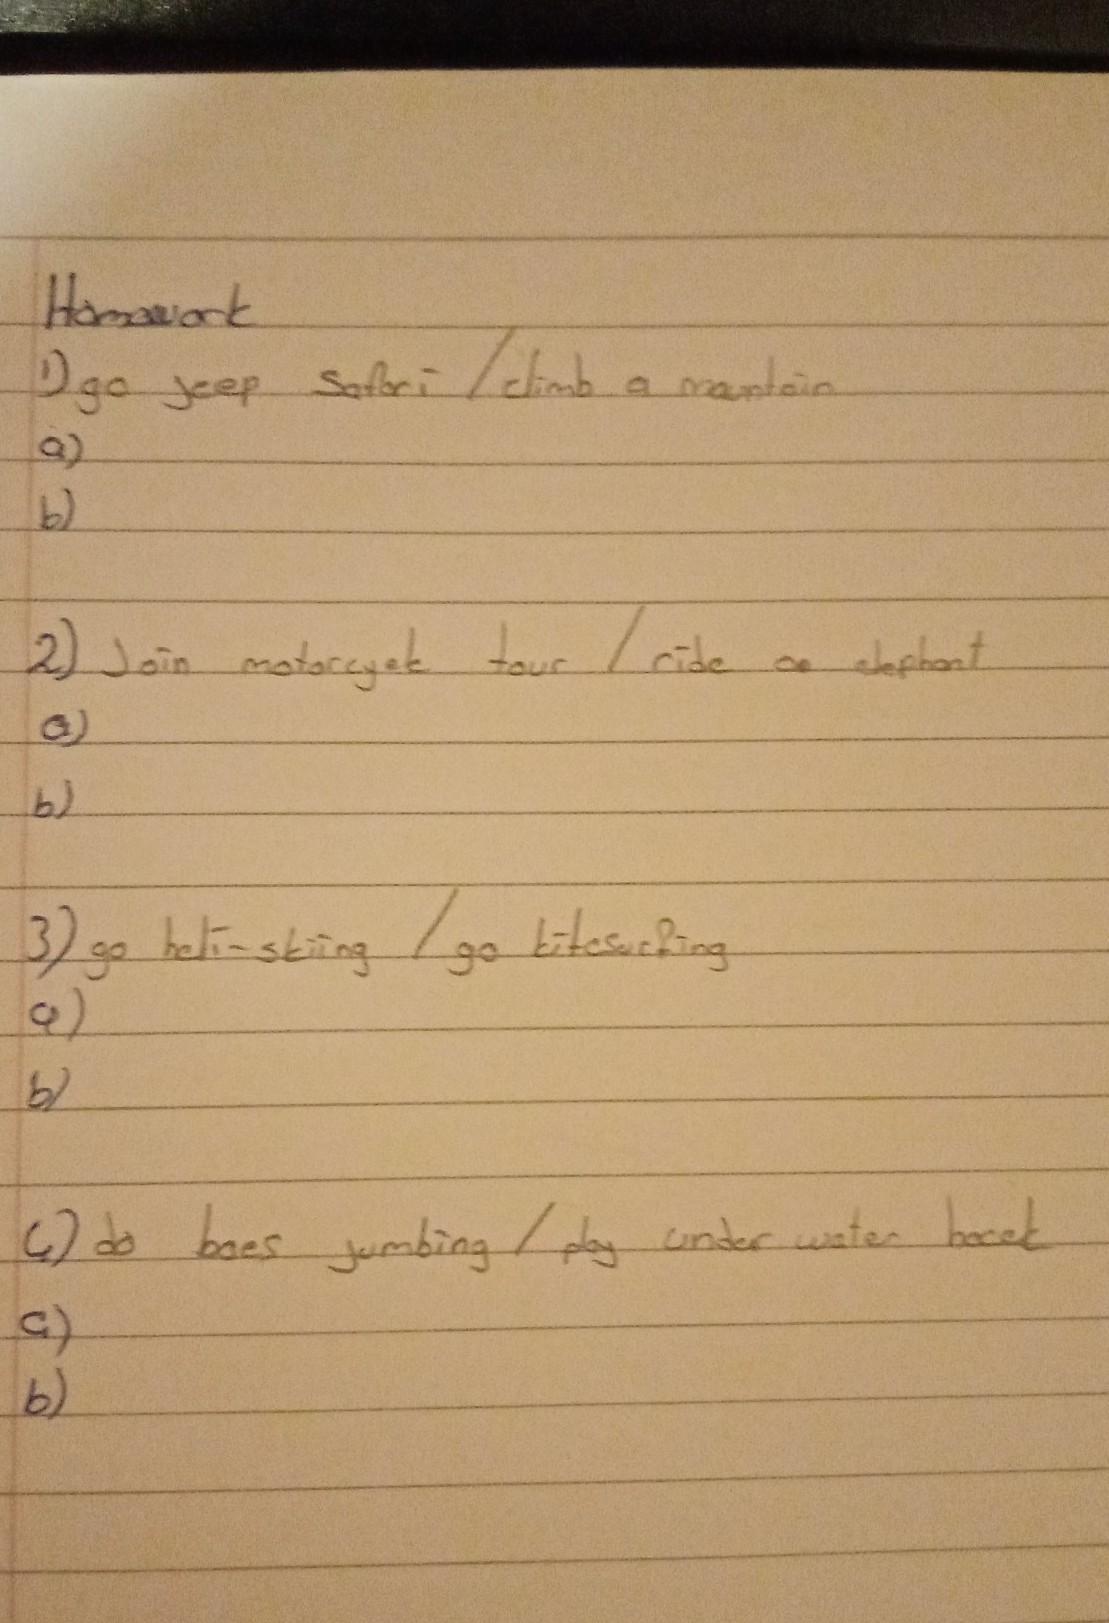 Homework
1) go jeep safari / climb a mountain
a)
b)
2) Join motorcycle tour / ride an elephant
a)
b)
3) go heli-skiing / go kitesurfing
a)
b)
4) do baes jumbing / play under water
a)
b)